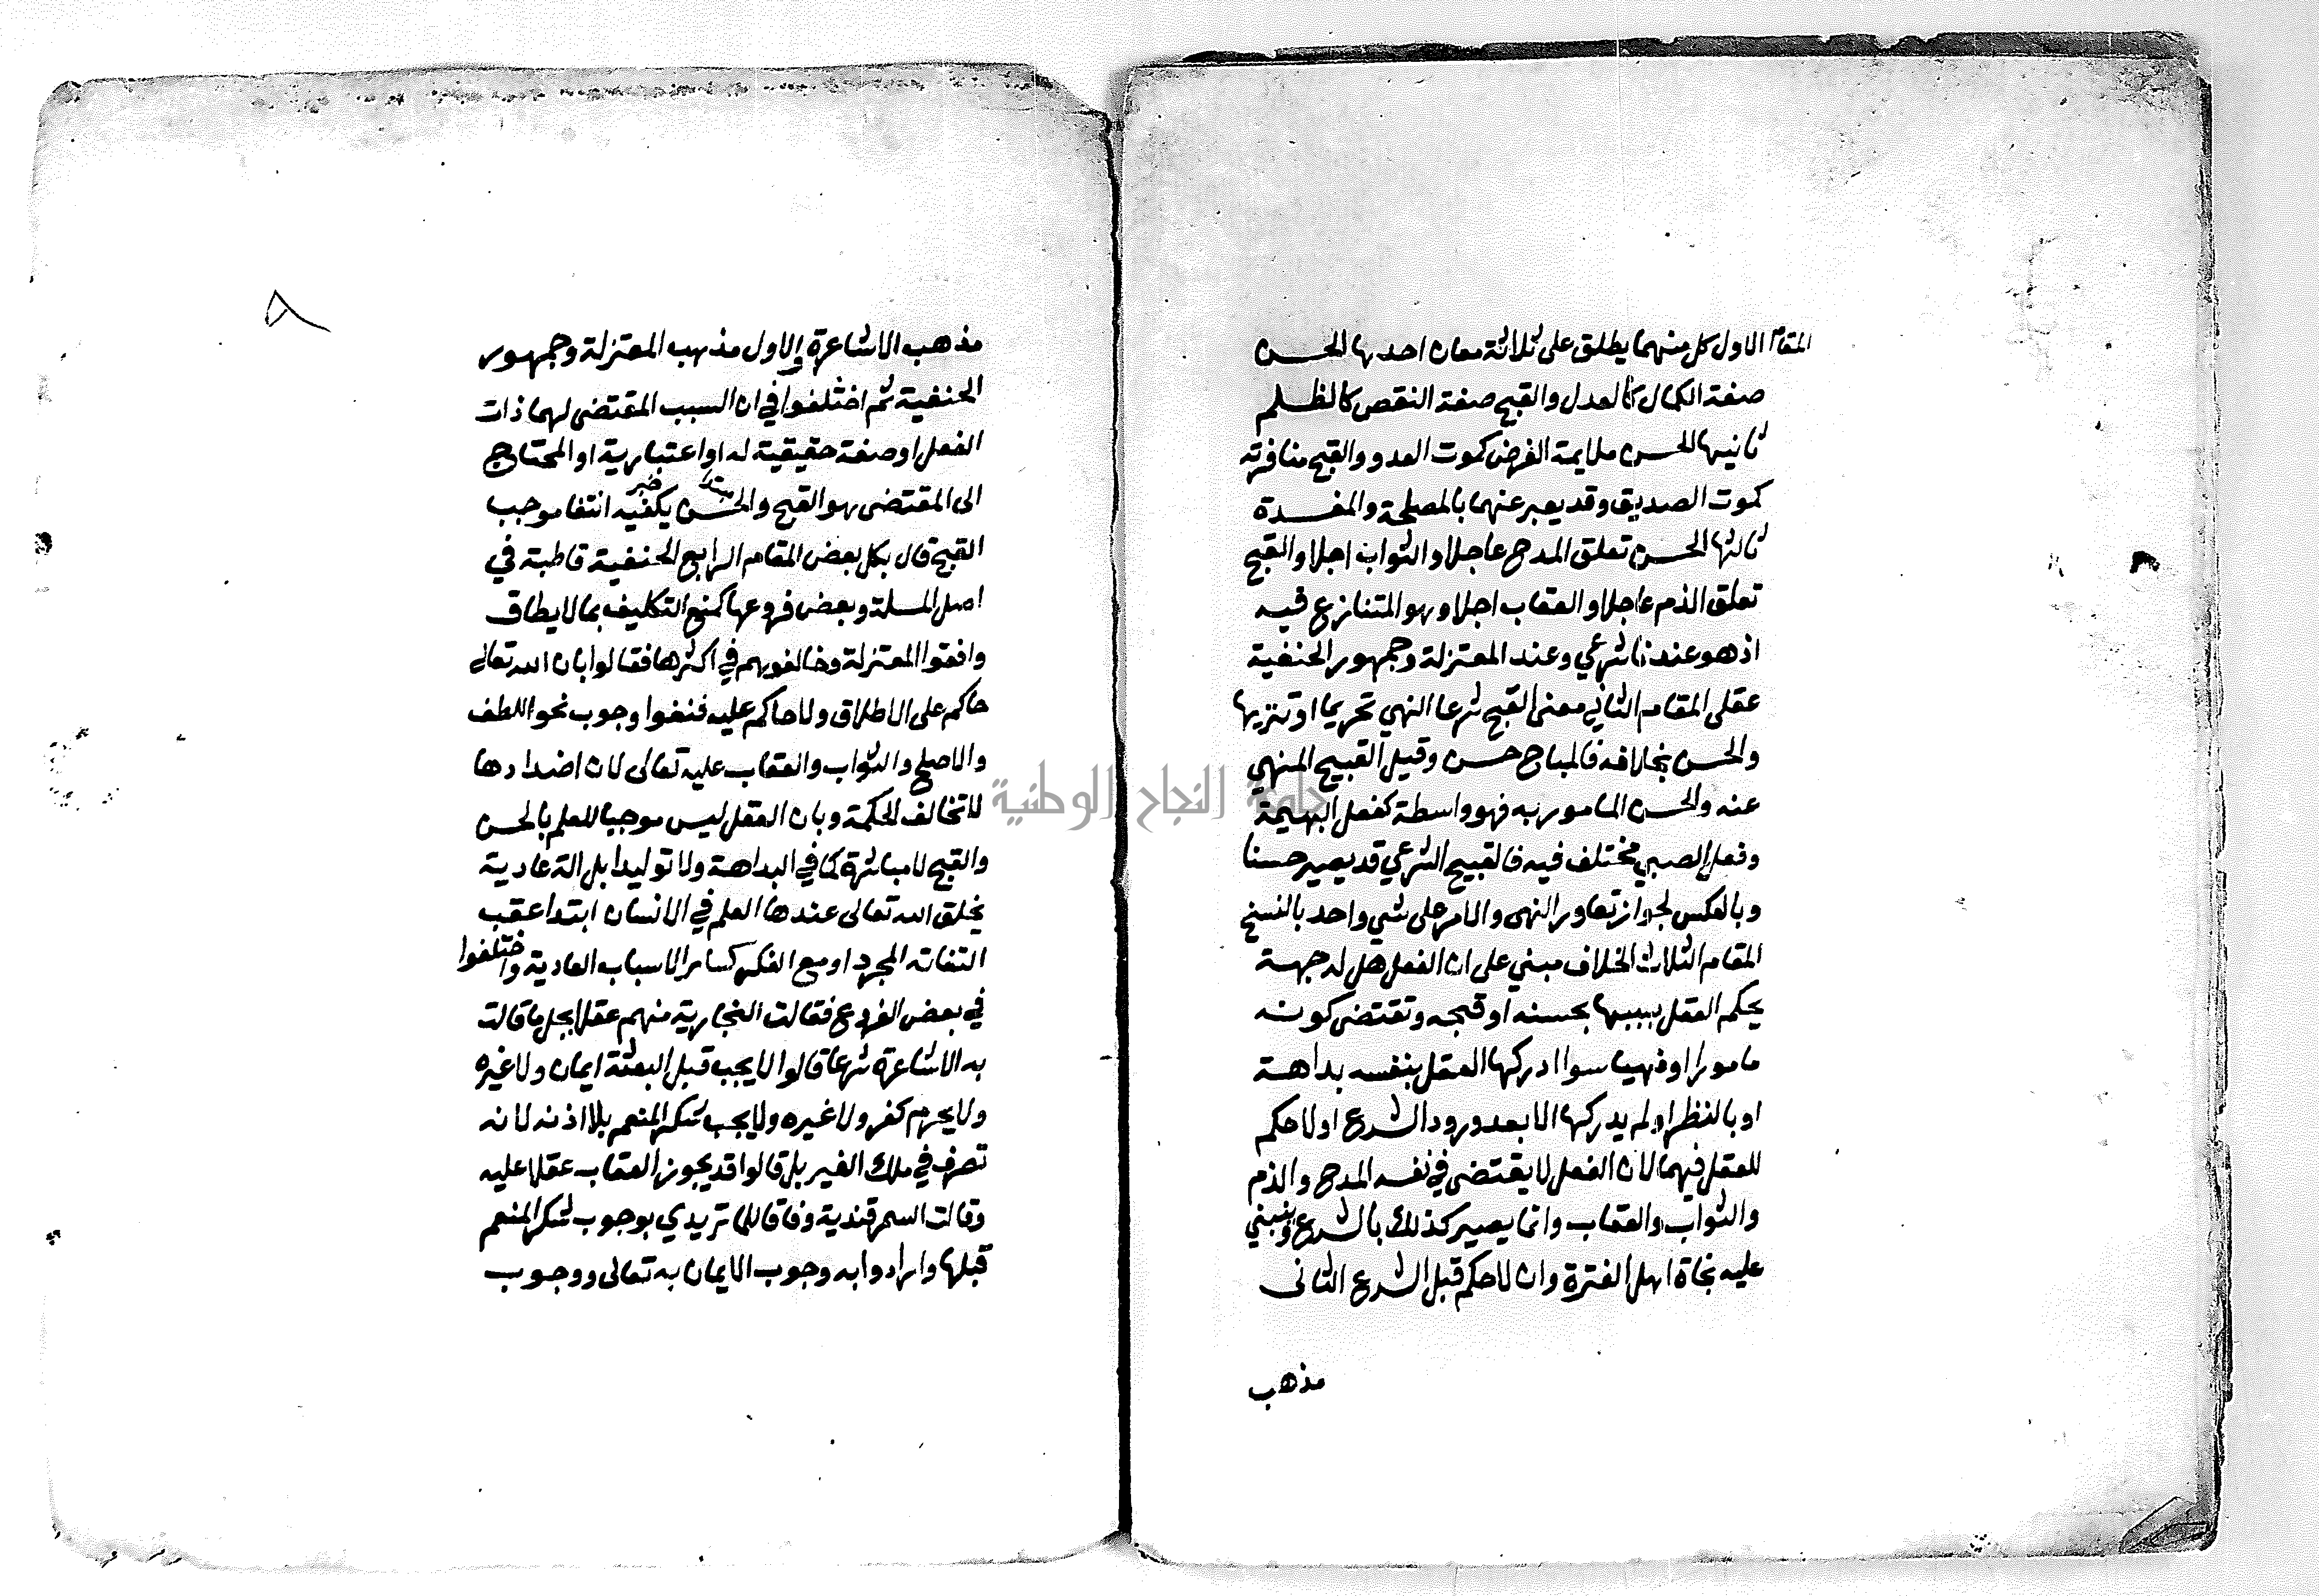 المقام الاول كل منهما يطلق على ثلاثة معان احدها الحسن
صفة الكمال كالعدل والقبح صفة النقص كالظلم
ثانيها الحسن ملايمة الغرض كموت العدو والقبح منافرته
كموت الصديق وقد يعبر عنهما بالمصلحة والمفسدة
ثالثها الحسن تعلق المدح عاجلا والثواب اجلا والقبح
تعلق الذم عاجلا والعقاب اجلا وهو المتنازع فيه
اذ هو عندنا شرعي وعند المعتزلة وجمهور الحنفية
عقلى المقام الثاني معنى القبح شرعا النهي تحريما او تنزيها
والحسن بخلافه فالمباح حسن وقيل القبيح المنهي
عنه والحسن المامور به فهو واسطة كفعل البهيمة
وفعل الصبي مختلف فيه فالقبيح الشرعي قد يصير حسنا
وبالعكس لجواز تعاور النهى والامر على شي واحد بالنسخ
المقام الثلاث الخلاف مبني على ان الفعل هل له جهة
يحكم العقل بسببها بحسنه او قبحه وتقتضى كونه
مامورا او منهيا سوا ادركها العقل بنفسه بداهة
او بالنظر او لم يدركها الا بعد ورود الشرع او لا حكم
للعقل فيهما لان الفعل لا يقتضى في نفسه المدح والذم
والثواب والعقاب وانما يصير كذلك بالشرع وينبني
عليه نجاة اهل الفترة وان لا حكم قبل الشرع الثانى
مذهب
جامعة النجاح الوطنية
٨
مذهب الاشاعرة والاول مذهب المعتزلة وجمهور
الحنفية ثم اختلفوا في ان السبب المقتضى لهما ذات
الفعل او صفة حقيقية له او اعتبارية او المحتاج
الى المقتضى هو القبح والحسن يكفيه انتفا موجب
مبتدا خبر
القبح قال بكل بعض المقام الرابع الحنفية قاطبة في
اصل المسلة وبعض فروعها كمنع التكليف بما لا يطاق
وافقوا المعتزلة وخالفوهم في اكثرها فقالوا بان الله تعالى
حاكم على الاطلاق ولا حاكم عليه فنفوا وجوب نحو اللطف
والاصلح والثواب والعقاب عليه تعالى لان اضدادها
لا تخالف الحكمة وبان العقل ليس موجبا للعلم بالحسن
والقبح لا مباشرة كما في البداهة ولا توليدا بل الة عادية
يخلق الله تعالى عندها العلم في الانسان ابتدا عقب
التفاته المجرد او مع الفكر كساير الاسباب العادية واختلفوا
في بعض الفروع فقالت البخارية منهم عقلا بجل ما قالت
به الاشاعرة شرعا قالوا لا يجب قبل البعثة ايمان ولا غيره
ولا يحرم كفر ولا غيره ولا يجب شكر المنعم بلا اذنه لانه
تصرف في ملك الغير بل قالوا قد يجوز العقاب عقلا عليه
وقالت السمرقندية وفاقا للماتريدي بوجوب شكر المنعم
قبلها وارادوا به وجوب الايمان به تعالى ووجوب